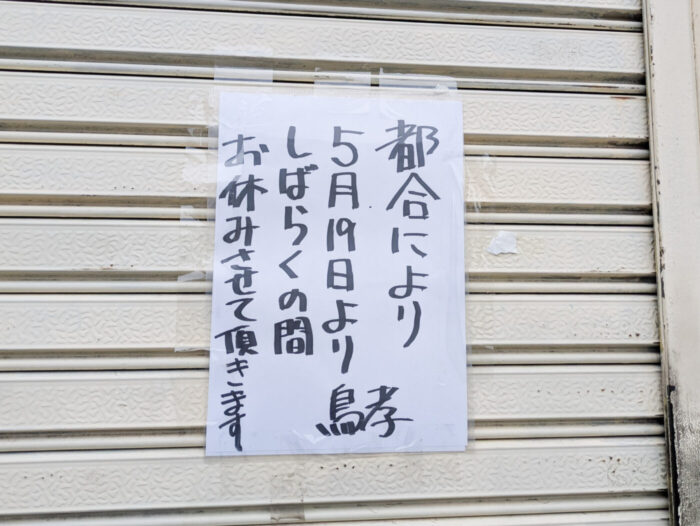 都合により
5月19日より
しばらくの間
お休みさせて頂きます
鳥孝